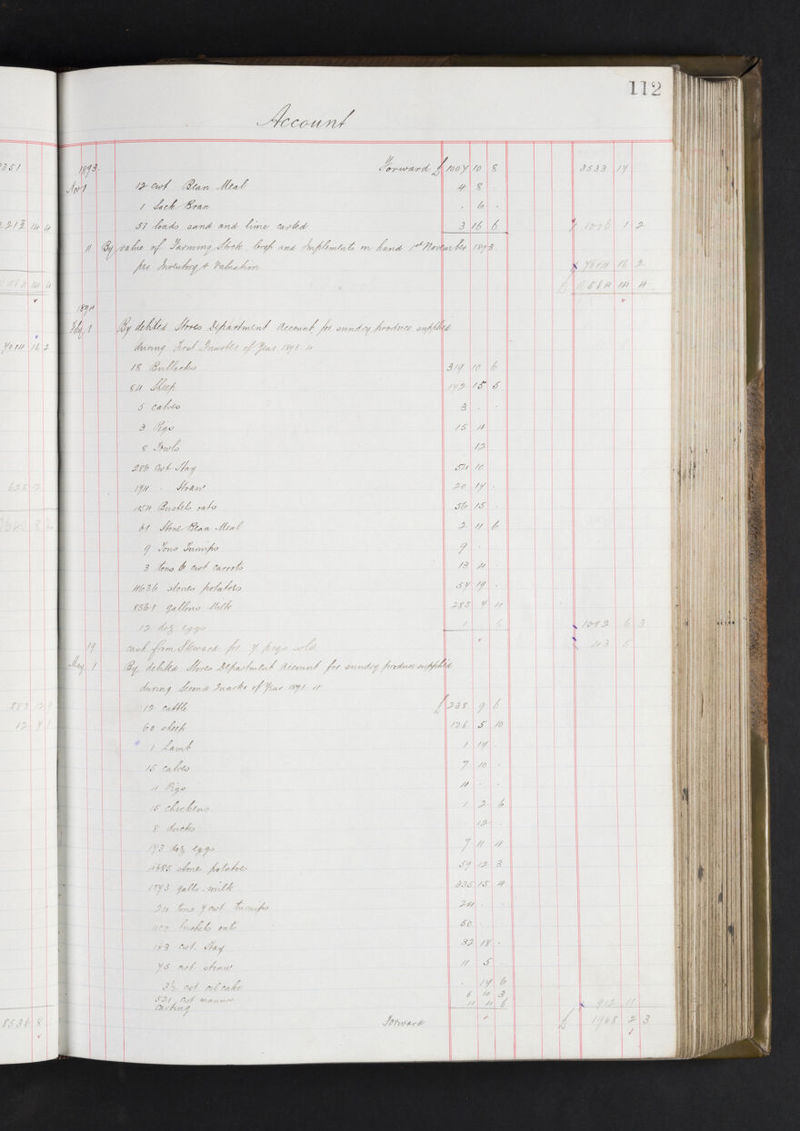 112
Account
1893. Forward £ 1007 10 8 3533 17
Nov 1 12 cwt Bean Meal 4 8
1 Sack Bran . 6 .
51 loads sand and lime carted 3 16 6 1016 1 2
" By value of Farming Stock, Crop and Implements on hand 1st November 1893
per Inventory & Valuation 16 2
14 4
1894
Feb, 1 By debited Stores Department Account for sundry produce supplied
during First Quarter of Year 1893.4
18 Bullocks 319 10 6
84 Sheep 172 15 5
5 calves 3 . .
3 Pigs 15 4
8 Fowls 12
286 cwt Hay 54 10
194 . Straw 20 17 .
454 Bushels oats 56 15 .
61 Stone Bean Meal 2 11 6
9 Tons Turnips 9 .
3 tons 6 cwt carrots 13 4 .
4636 stones potatoes 57 19 .
8561 gallons Milk 285 7 11
12 doz eggs 1 6 1092 6 3
19 cash from Steward for 7 pigs sold 6
May 1 By debited Stores Department Account for sundry produce supplied
during Second Quarter of Year 1893.4
12 cattle £ 238 9 6
60 sheep 126 5 10
1 Lamb 1 17 .
15 calves 7 10 .
4 Pigs 4 . .
15 chickens 1 2 6
8 ducks 12 .
173 doz eggs 7 11 4
stone potatoes 59 12 3
galls. milk 335 15 4
24 tons 7 cwt. turnips 24 . .
400 bushels oats 50
183 cwt. Hay 32 18 .
75 cwt straw 11 5 .
3½ cwt. oil cake . 19 6
521 cwt manure 6 10 3
Carting 11 11 6 912 11
Forward £ 1968 2 3